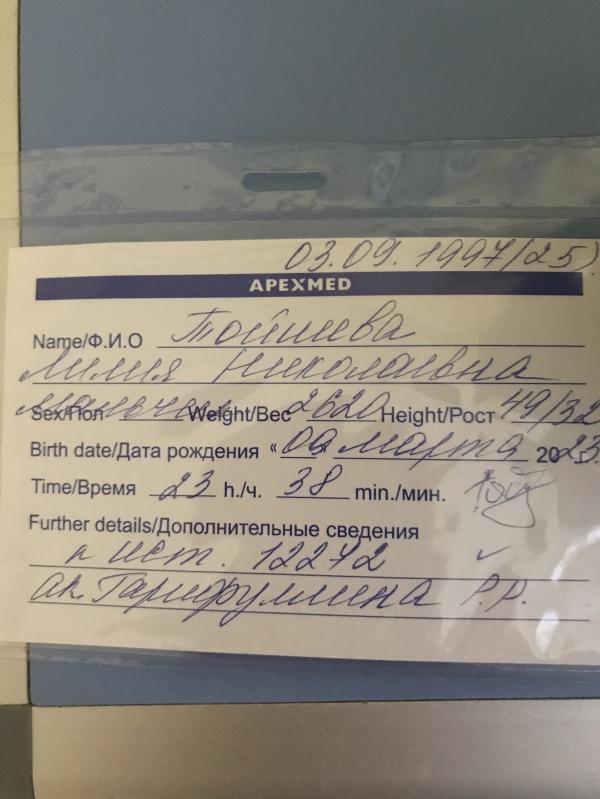 03.09.1997(25)
APEXMED
Name/Ф.И.О Тойшева
Лилия Николаевна
Sex/Пол мальчик Weight/Вес 2620 Height/Рост 49/32
Birth date/Дата рождения « 09 » марта 2023.
Time/Время 23 h./ч. 38 min./мин.
Further details/Дополнительные сведения
к ист. 12272
ак. Гарифуллина Р.Р.